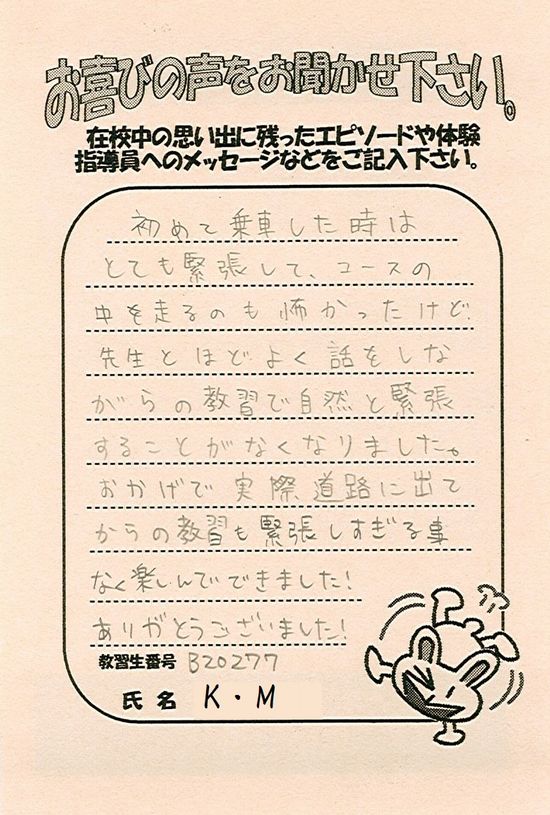 お喜びの声をお聞かせ下さい。
在校中の思い出に残ったエピソードや体験
指導員へのメッセージなどをご記入下さい。
初めて乗車した時は
とても緊張して、コースの
中を走るのも怖かったけど
先生とほどよく話をしな
がらの教習で自然と緊張
することがなくなりました。
おかげで実際道路に出て
からの教習も緊張しすぎる事
なく楽しんでできました!
ありがとうございました!
教習生番号 B20277
氏名 K・M